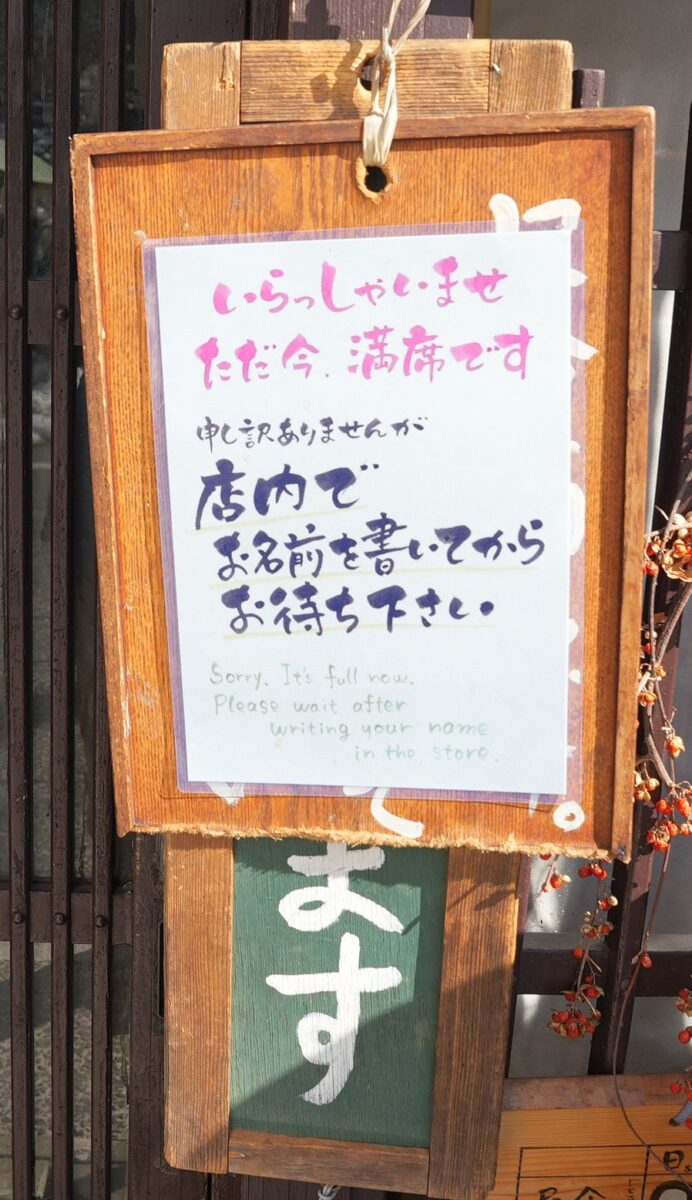 いらっしゃいませ
ただ今、満席です
申し訳ありませんが
店内で
お名前を書いてから
お待ち下さい
Sorry. It's full now.
Please wait after
writing your name
in the store.
ます
日